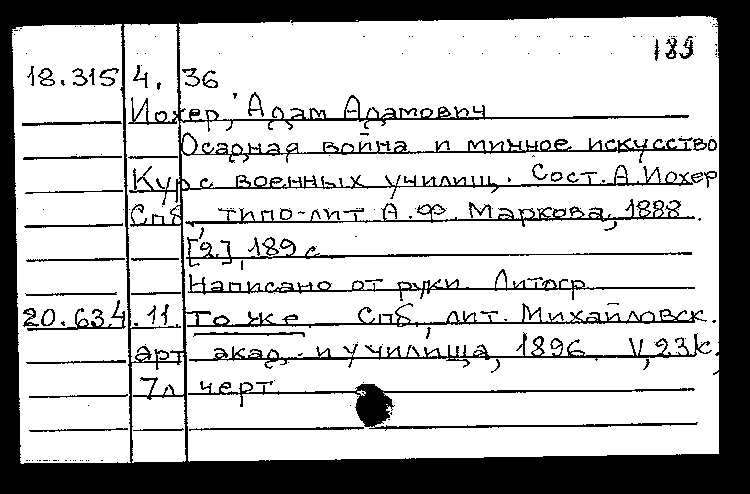 189
18.315 4. 36
Иохер, Адам Адамович
Осадная война и минное искусство
Курс военных училищ. Сост. А. Иохер
Спб. типо-лит А.Ф. Маркова, 1888.
[2], 189 с
Написано от руки. Литогр
20.634 .11. То же. Спб, лит. Михайловск.
арт акад. и училища, 1896. V, 23
7л черт